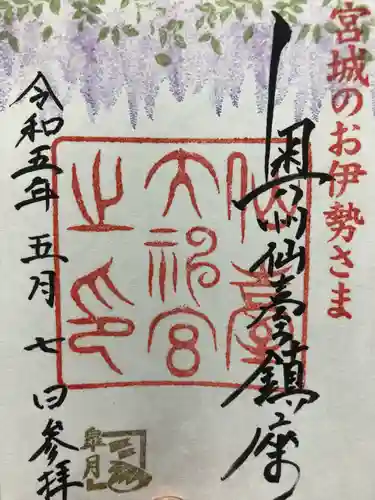 宮城のお伊勢さま
奥州仙臺鎮座
仙臺
大神宮
之印
令和五年五月七日参拝
皐月